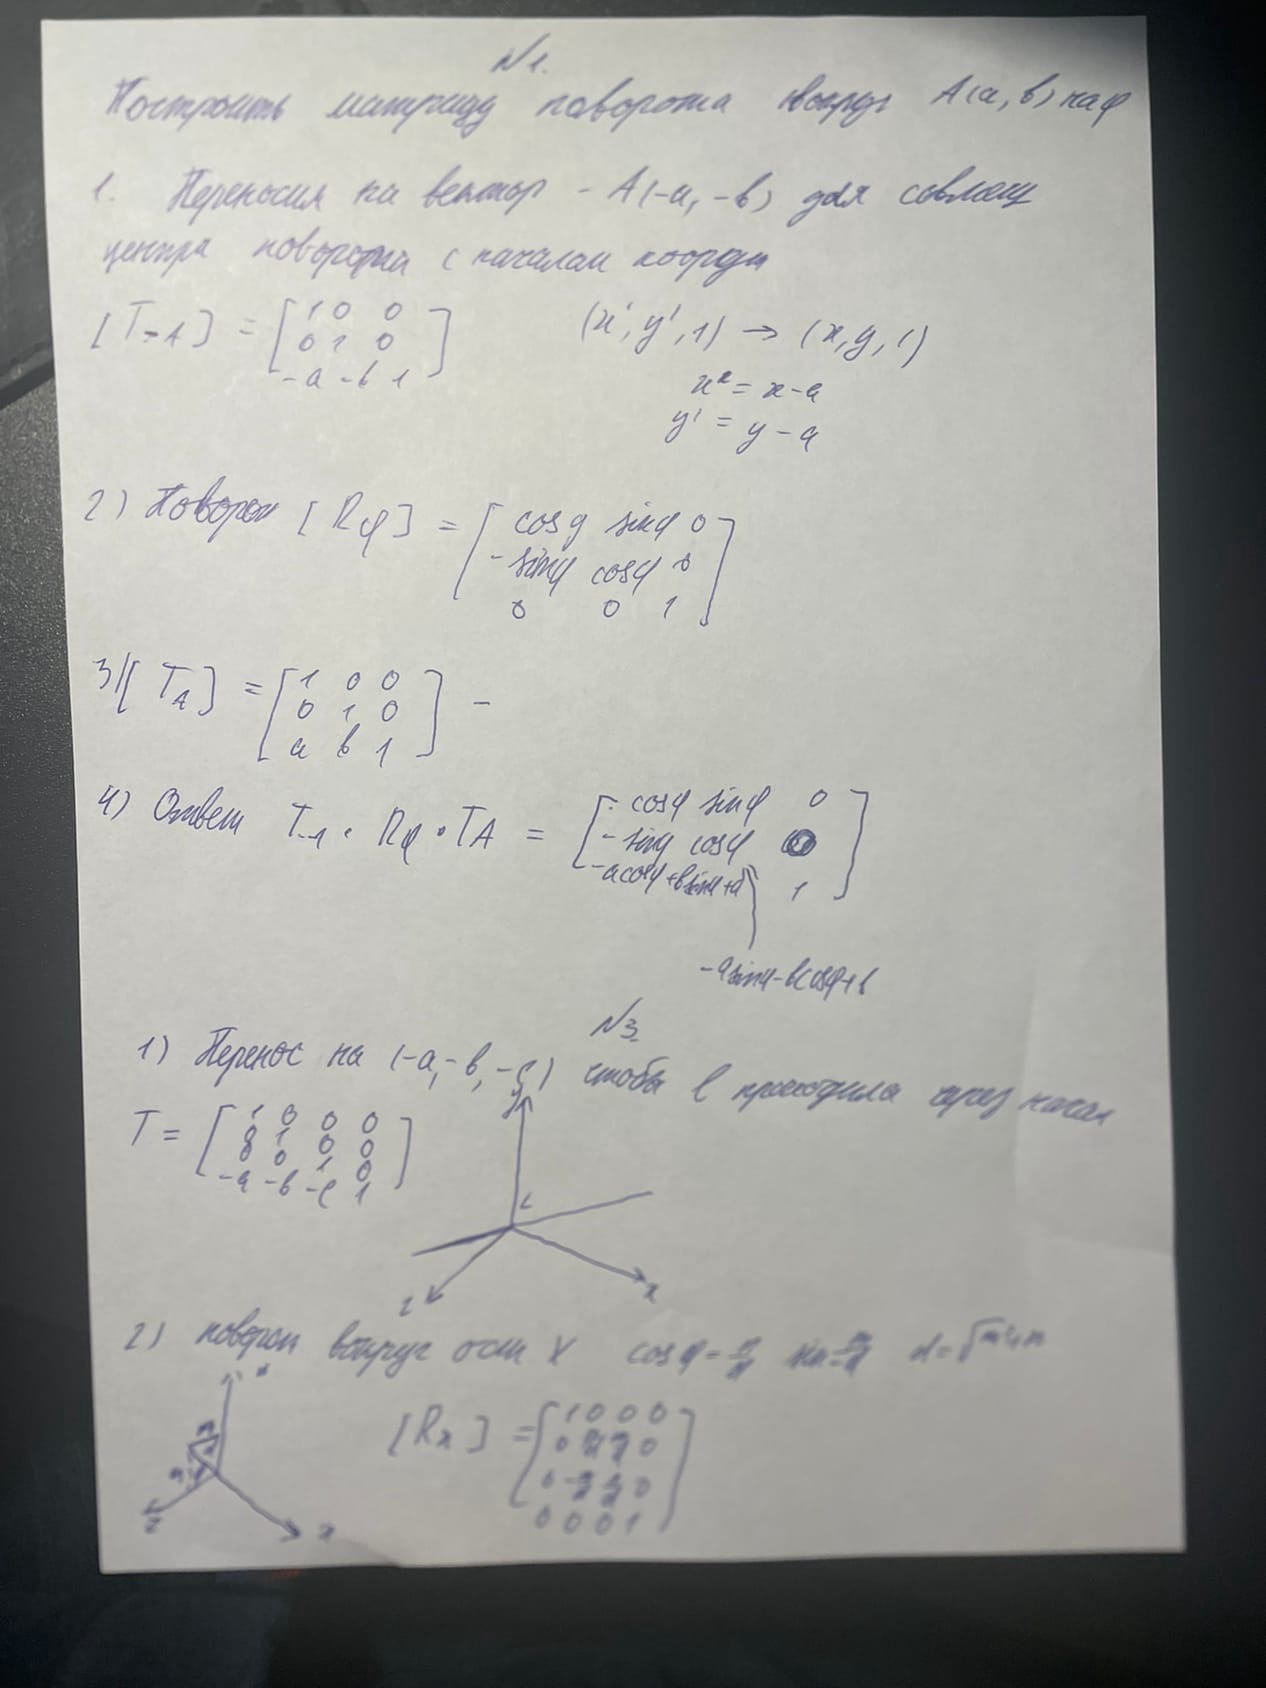 N1.
Построить матрицу поворота вокруг A(a, b) на φ
1. Переносим на вектор -A(-a, -b) для совмещ
центра поворота с началом коорди
[T-A] = [1 0 0
0 1 0
-a -b 1]
(x', y', 1) → (x, y, 1)
x' = x-a
y' = y-a
2) Поворот [Rφ] = [cosφ sinφ 0
-sinφ cosφ 0
0 0 1]
3) [TA] = [1 0 0
0 1 0
a b 1] -
4) Ответ T-A · Rφ · TA = [cosφ sinφ 0
-sinφ cosφ 0
-acosφ+bsinφ+a 1]
-asinφ-bcosφ+b
N3.
1) Перенос на (-a, -b, -c) чтобы l проходила через начал
T = [1 0 0 0
0 1 0 0
0 0 1 0
-a -b -c 1]
y
L
z
x
2) поворот вокруг оси X cosφ =
[Rx] = [1 0 0 0
0 0
0 0
0 0 0 1]
z
x